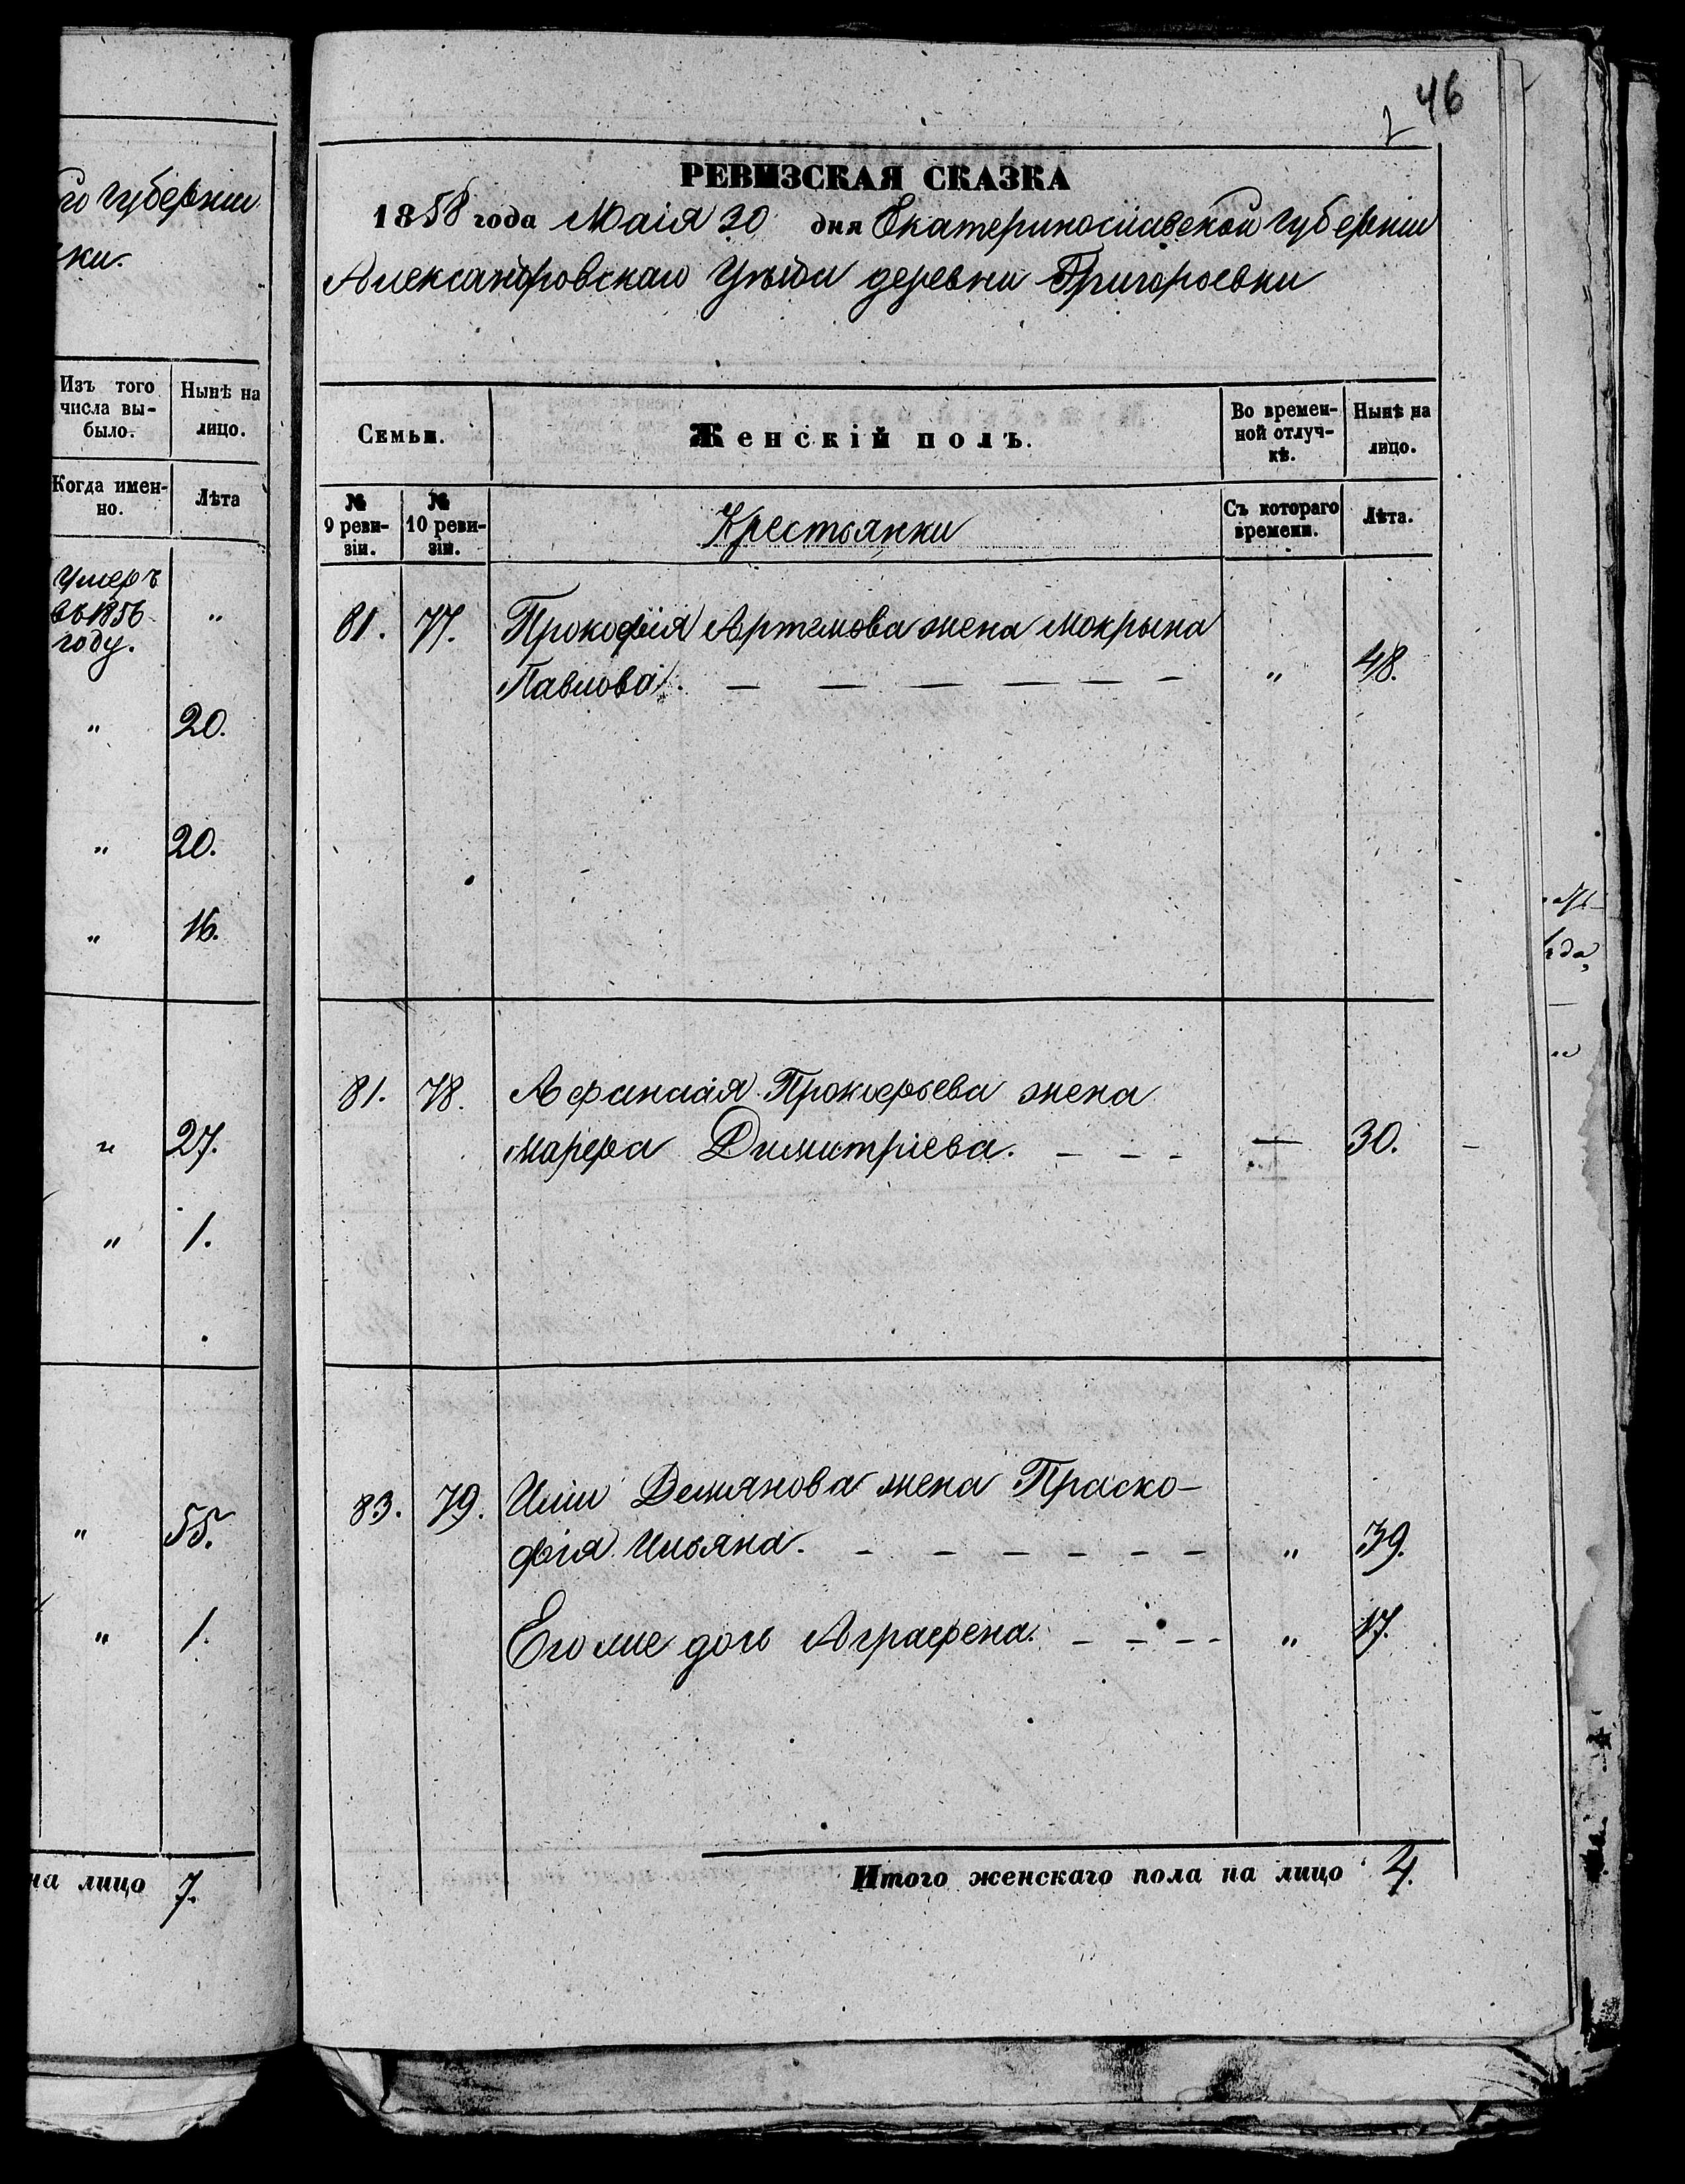 го губерніи
ки.
Изъ того числа вы-было.
Нынѣ на лицо.
Когда имен-но.
Лѣта
Умеръ
въ 1856
году.
"
" 20.
" 20.
" 16.
" 27.
" 1.
" 55.
" 1.
на лицо 7.
46
РЕВИЗСКАЯ СКАЗКА
1858 года Маія 30 дня Екатеринославской губерніи
Александровскаго Уѣзда деревни Григорьевки
Семьи.
Женскій полъ.
Во времен-ной отлуч-кѣ.
Нынѣ на лицо.
№ 9 реви-зіи.
№ 10 реви-зіи.
Крестьянки
Съ котораго времени.
Лѣта.
81. 77. Прокофія Артемова жена Мокрына
Павлова. — — — — — — — " 48.
81. 78. Афанасія Прокофьева жена
Марфа Димитріева. — — — — 30.
83. 79. Ильи Демянова жена Праско-
фія Ильяна. — — — — — — " 39.
Его же дочь Аграфена. — — — — " 17.
Итого женскаго пола на лицо 4.